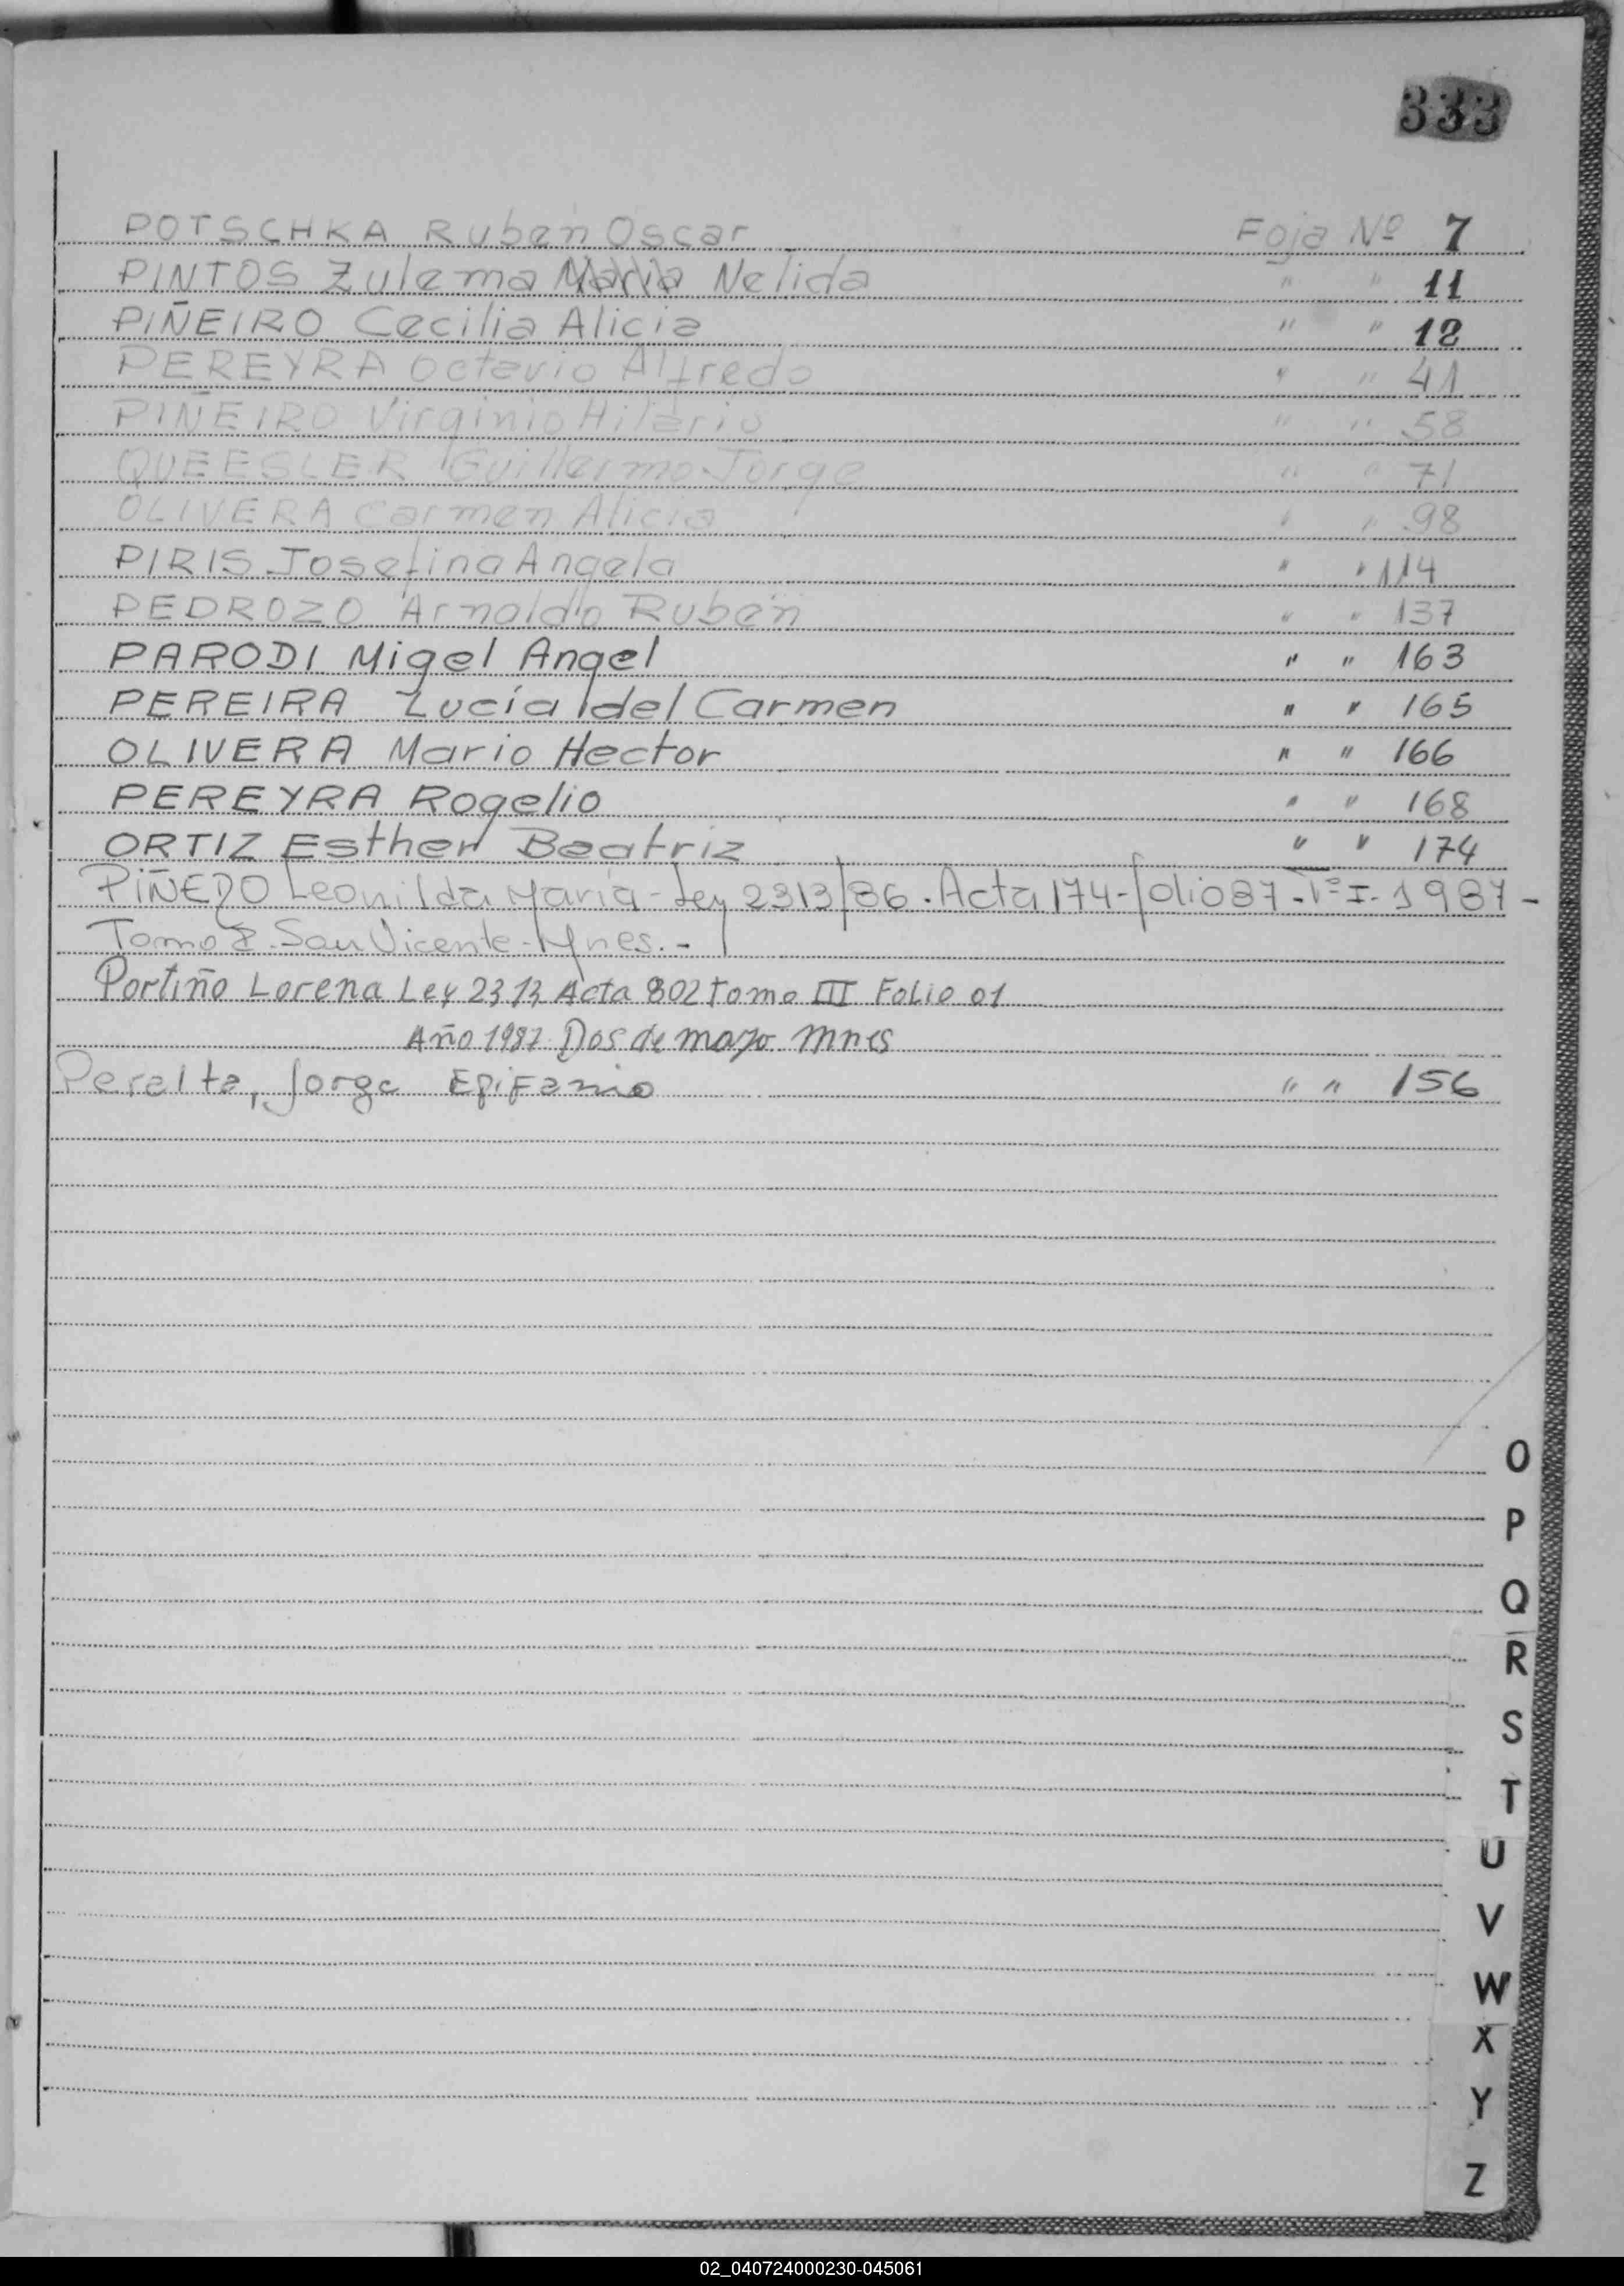 333
POTSCHKA Ruben Oscar Foja Nº 7
PINTOS Zulema Maria Nelida " " 11
PIÑEIRO Cecilia Alicia " " 12
PEREYRA Octavio Alfredo " " 41
PIÑEIRO Virginio Hilario " " 58
QUEESLER Guillermo Jorge " " 71
OLIVERA Carmen Alicia " " 98
PIRIS Josefina Angela " " 114
PEDROZO Arnoldo Ruben " " 137
PARODI Migel Angel " " 163
PEREIRA Lucía del Carmen " " 165
OLIVERA Mario Hector " " 166
PEREYRA Rogelio " " 168
ORTIZ Esther Beatriz " " 174
PIÑEDO Leonilda María - Ley 2313/86. Acta 174 - folio 87 - Tº I - 1987 -
Tomo San Vicente - Mnes. -
Portiño Lorena Ley 2313 Acta 802 Tomo III Folio 01
Año 1987 Dos de mayo mnes
Peralta, Jorge Epifanio " " 156
O
P
Q
R
S
T
U
V
W
X
Y
Z
02_040724000230-045061